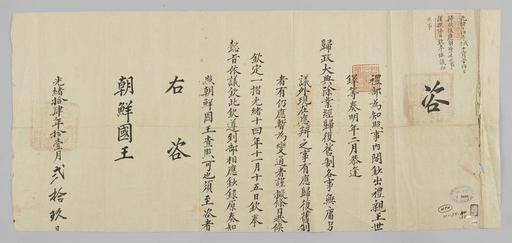 咨
禮部為知照事內閣鈔出禮親王世
鐸等奏明年二月恭逢
歸政大典除業經歸復舊制各事無庸另
議外現在應辦之事有應歸復舊制
者有仍應暫為變通者謹擬條目恭候
欽定一摺光緒十四年十一月十五日欽奉
懿旨依議欽此欽遵到部相應鈔錄原奏知
照朝鮮國王查照可也須至咨者
右咨
朝鮮國王
光緒拾肆年拾壹月貳拾玖日